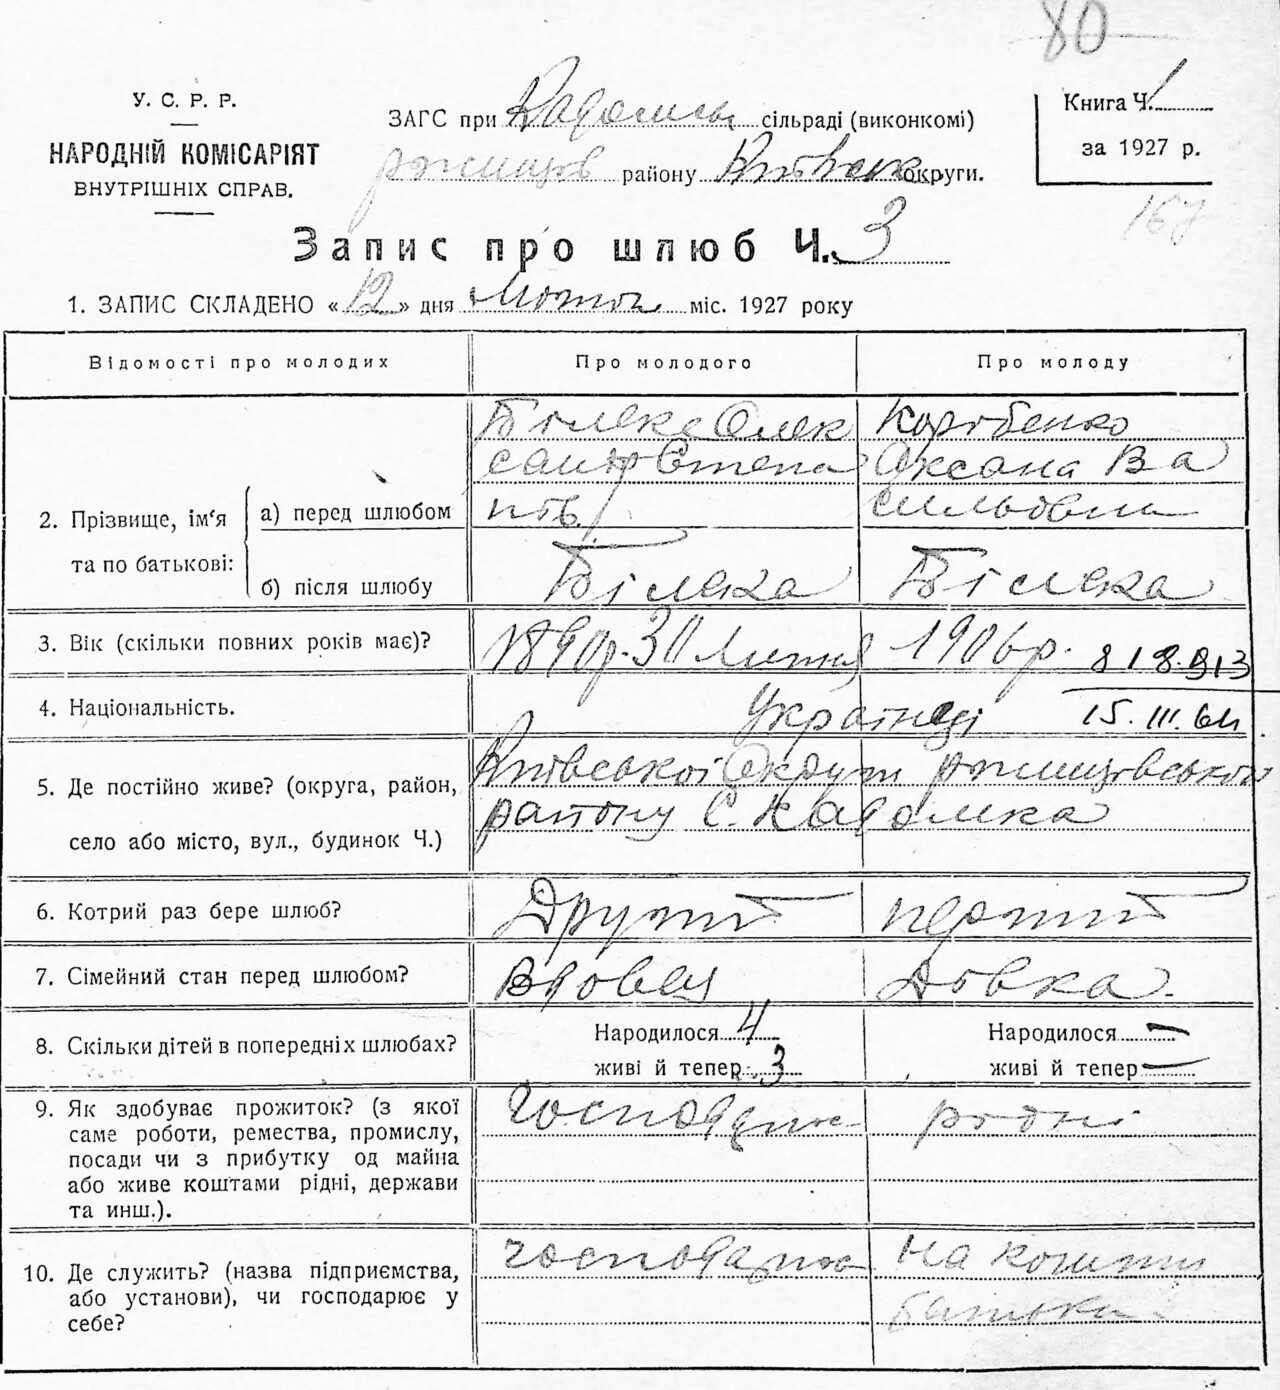 80
У. С. Р. Р.
НАРОДНІЙ КОМІСАРІЯТ
ВНУТРІШНІХ СПРАВ.
ЗАГС при Кадомськ сільраді (виконкомі)
ржищів району Київськ округи.
Книга Ч. 1
за 1927 р.
167
Запис про шлюб Ч. 3
1. ЗАПИС СКЛАДЕНО «12» дня лютого міс. 1927 року
Відомості про молодих Про молодого Про молоду
2. Прізвище, ім'я та по батькові:
а) перед шлюбом
Білека Олек
сандр Степа
нов.
Коробенко
Оксана Ва
сильовна
б) після шлюбу Білека Білека
3. Вік (скільки повних років має)? 1890р. 30 Лютня 1906р. 818.913
4. Національність. Українці 15.III.64
5. Де постійно живе? (округа, район,
село або місто, вул., будинок Ч.)
Київської Округи ржищівської
району С. Кадомка
6. Котрий раз бере шлюб? Другий перший
7. Сімейний стан перед шлюбом? Вдовец Дівка.
8. Скільки дітей в попередніх шлюбах? Народилося 4 Народилося —
живі й тепер 3 живі й тепер —
9. Як здобуває прожиток? (з якої
саме роботи, ремества, промислу,
посади чи з прибутку од майна
або живе коштами рідні, держави
та инш.).
господарж
рідні
10. Де служить? (назва підприємства,
або установи), чи господарює у
себе?
господарж
на кошти
батька